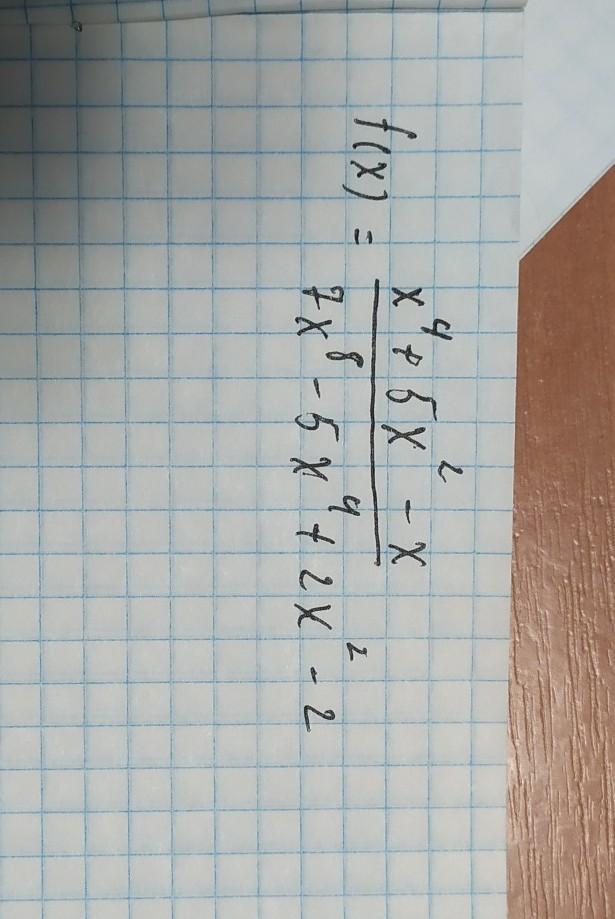 f(x) = (x⁴ + 5x² - x) / (7x⁸ - 5x⁴ + 2x² - 2)